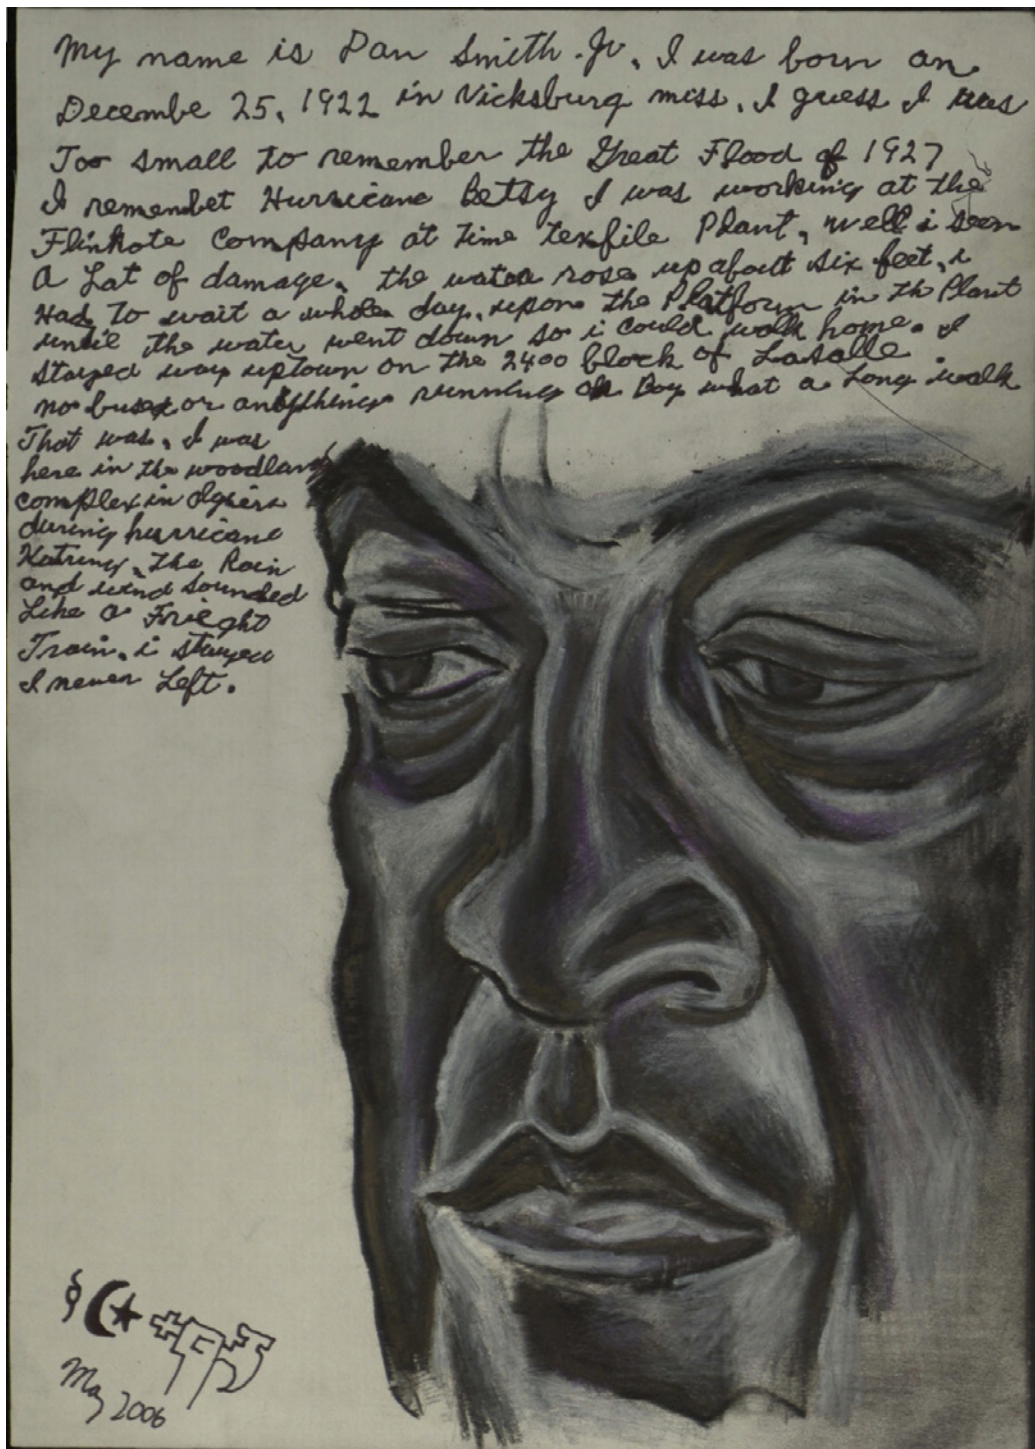 My name is Dan Smith Jr. I was born on
Decembe 25, 1922 in Vicksburg miss. I guess I was
Too small to remember the Great Flood of 1927
I remembet Hurricane Betsy I was working at the
Flinkote Company at Time texfile Plant, well i seen
A Lot of damage, the water rose up about six feet, i
Had to wait a whole day, upon the Platform in th Plant
until the water went down so i could walk home. I
stayed way uptown on the 2400 block of Lasalle.
no buses or anything running oh Boy what a Long walk
That was, I was
here in the woodland
complex in Algiers
during hurricane
Katrina, The Rain
and wind sounded
Like a Frieght
Train, i stayed
I never Left.
May 2006